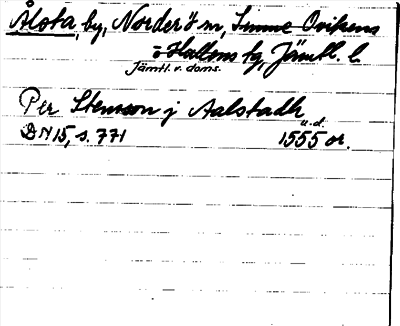 Ålsta, by, Norderö sn, Sunne Ovikens
o Hallens tg, Jämtl. l.
Jämtl. v. doms.
Per Stenson j Aalstadh
u.d.
DN 15, s. 771 1555 or.